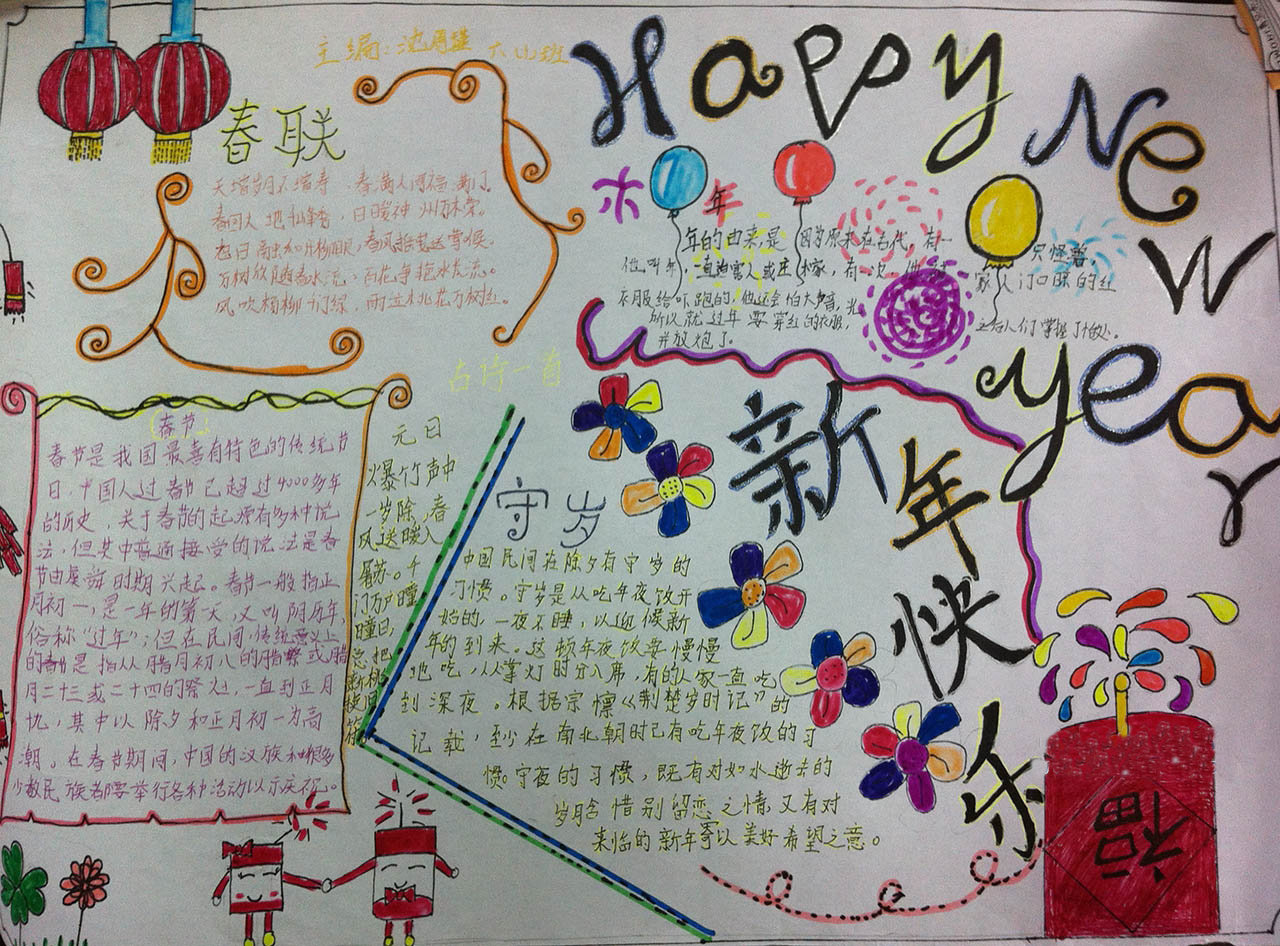 主编:沈 六(4)班
Happy
New
Year
春联
天增岁月人增寿,春满人间福满门。
春回大地 ,日暖神州万木荣。
春日 ,春风 送
万树 随春水流,百花争艳
风吹杨柳千门绿,雨 万树红。
年
年的由来是 因为原来在古代,有一只怪兽,
他叫年,一直 害人或庄稼,有一次,他 家人门口晒的红
衣服给吓跑的,他还会怕大声音,光,之后人们掌握了 。
所以就过年要穿红的衣服,
并放炮了。
春节
春节是我国最喜有特色的传统节
日,中国人过春节已超过4000多年
的历史,关于春节的起源有多种说
法,但其中普遍接受的说法是春
节由虞舜时期兴起。春节一般指正
月初一,是一年的第一天,又叫阴历年,
俗称“过年”;但在民间,传统意义上
的春节是指从腊月初八的腊祭或腊
月二十三或二十四的祭灶,一直到正月
,其中以除夕和正月初一为高
潮。在春节期间,中国的汉族和很多
少数民族都要举行各种活动以示庆祝。
古诗一首
元日
爆竹声中
一岁除,春
风送暖入
屠苏。千
门万户曈
曈日,
总把
新桃
换旧
符。
守岁
中国民间在除夕有守岁的
习惯。守岁是从吃年夜饭开
始的,一夜不睡,以迎候新
年的到来。这顿年夜饭要慢慢
地吃,从掌灯时分入席,有的人家一直吃
到深夜。根据宗懔《荆楚岁时记》的
记载,至少在南北朝时已有吃年夜饭的习
惯。守夜的习惯,既有对如水逝去的
岁月含惜别留恋之情又有对
来临的新年寄以美好希望之意。
新
年
快
乐
福